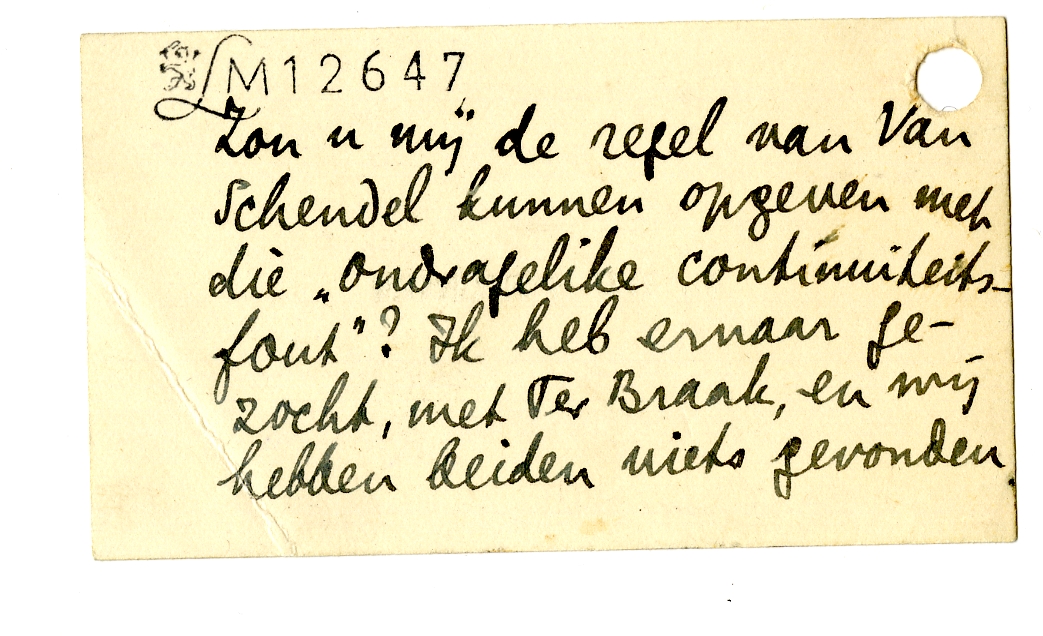 LM 12647
Zou u mij de regel van Van
Schendel kunnen opgeven met
die „ondragelike continuiteits-
fout"? Ik heb ernaar ge-
zocht, met Ter Braak, en wij
hebben beiden niets gevonden.